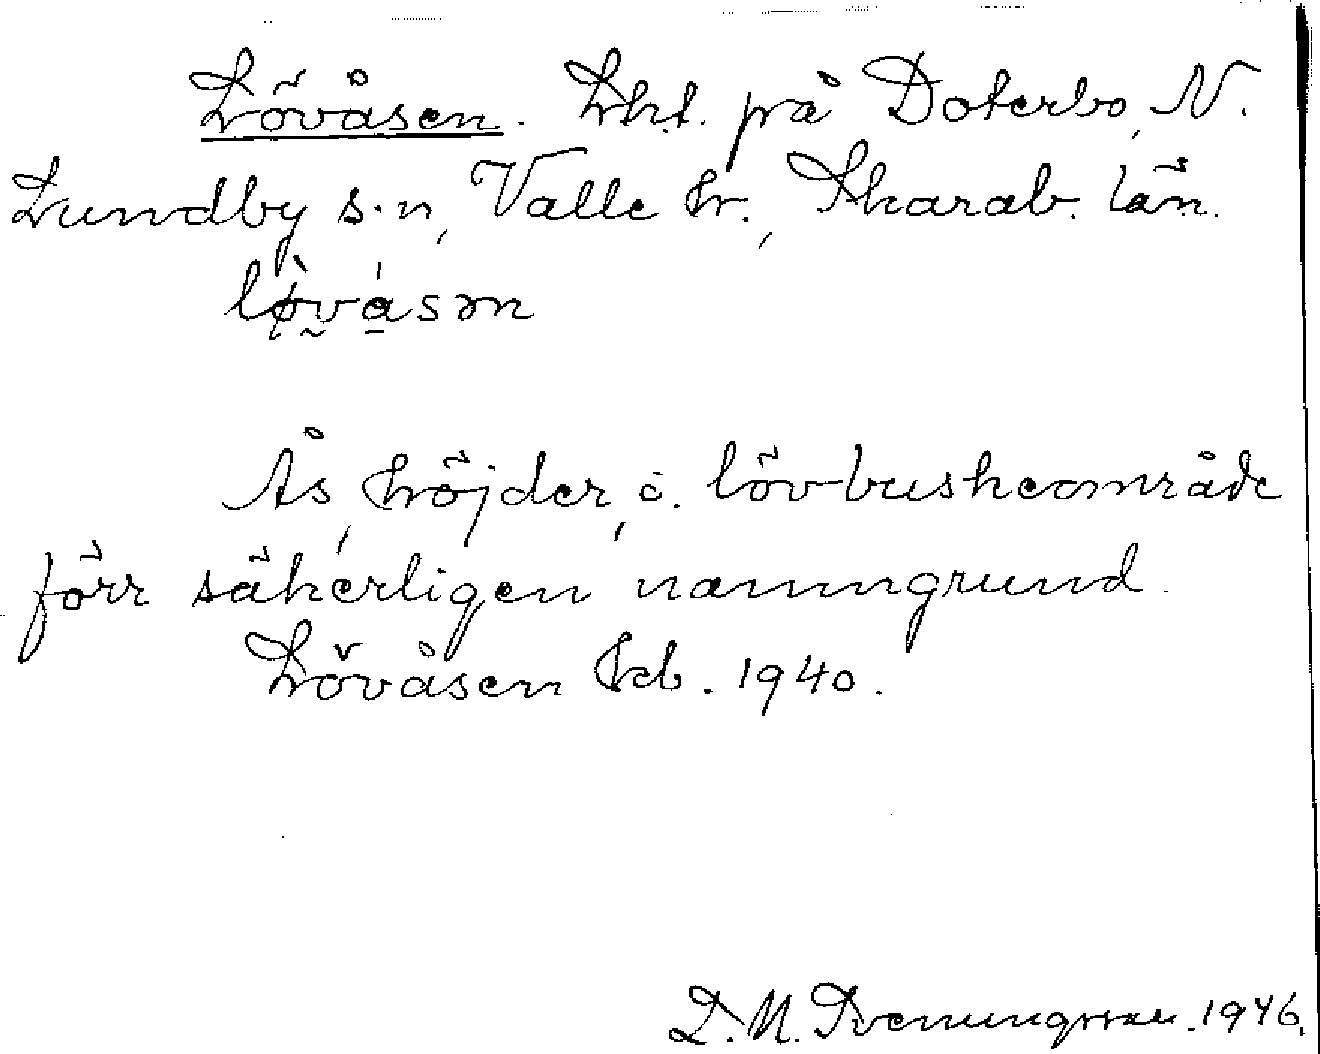 Lövåsen. Lht. på Doterbo, N.
Lundby s:n, Valle hr., Skarab. län.
lø̀vásən
Ås, höjder, o. lövbuskeområde
förr säkerligen namngrund.
Lövåsen Jeb. 1940.
L. M. Svenungsson. 1946.